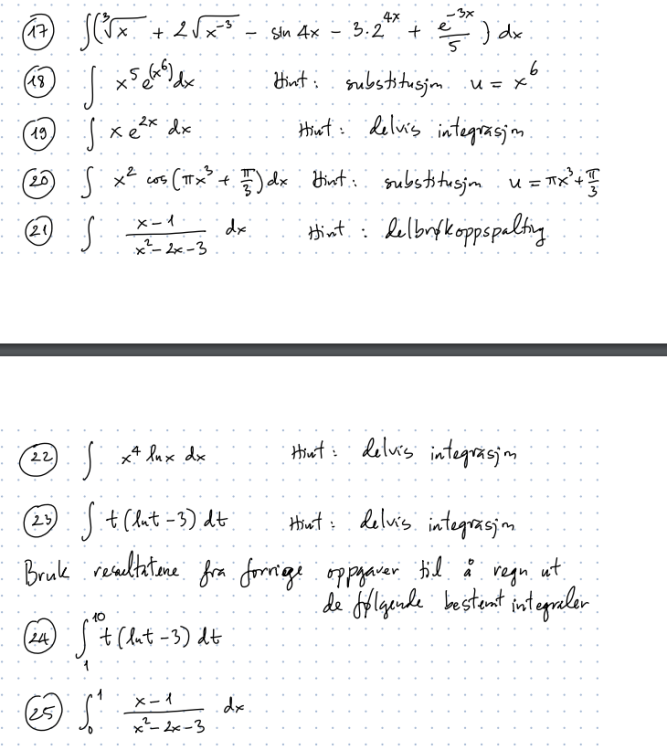 (17) ∫(∛x + 2√x⁻³ - sin 4x - 3·2^{4x} + e^{-3x}/5) dx
(18) ∫ x⁵ e^{(x⁶)} dx Hint: substitusjon u = x⁶
(19) ∫ x e^{2x} dx Hint: delvis integrasjon
(20) ∫ x² cos(πx³ + π/3) dx Hint: substitusjon u = πx³ + π/3
(21) ∫ (x-1)/(x²-2x-3) dx Hint: delbrøkoppspalting
(22) ∫ x⁴ ln x dx Hint: delvis integrasjon
(23) ∫ t(ln t - 3) dt Hint: delvis integrasjon
Bruk resultatene fra forrige oppgaver til å regn ut
de følgende bestemt integraler
(24) ∫₁¹⁰ t(ln t - 3) dt
(25) ∫₀¹ (x-1)/(x²-2x-3) dx